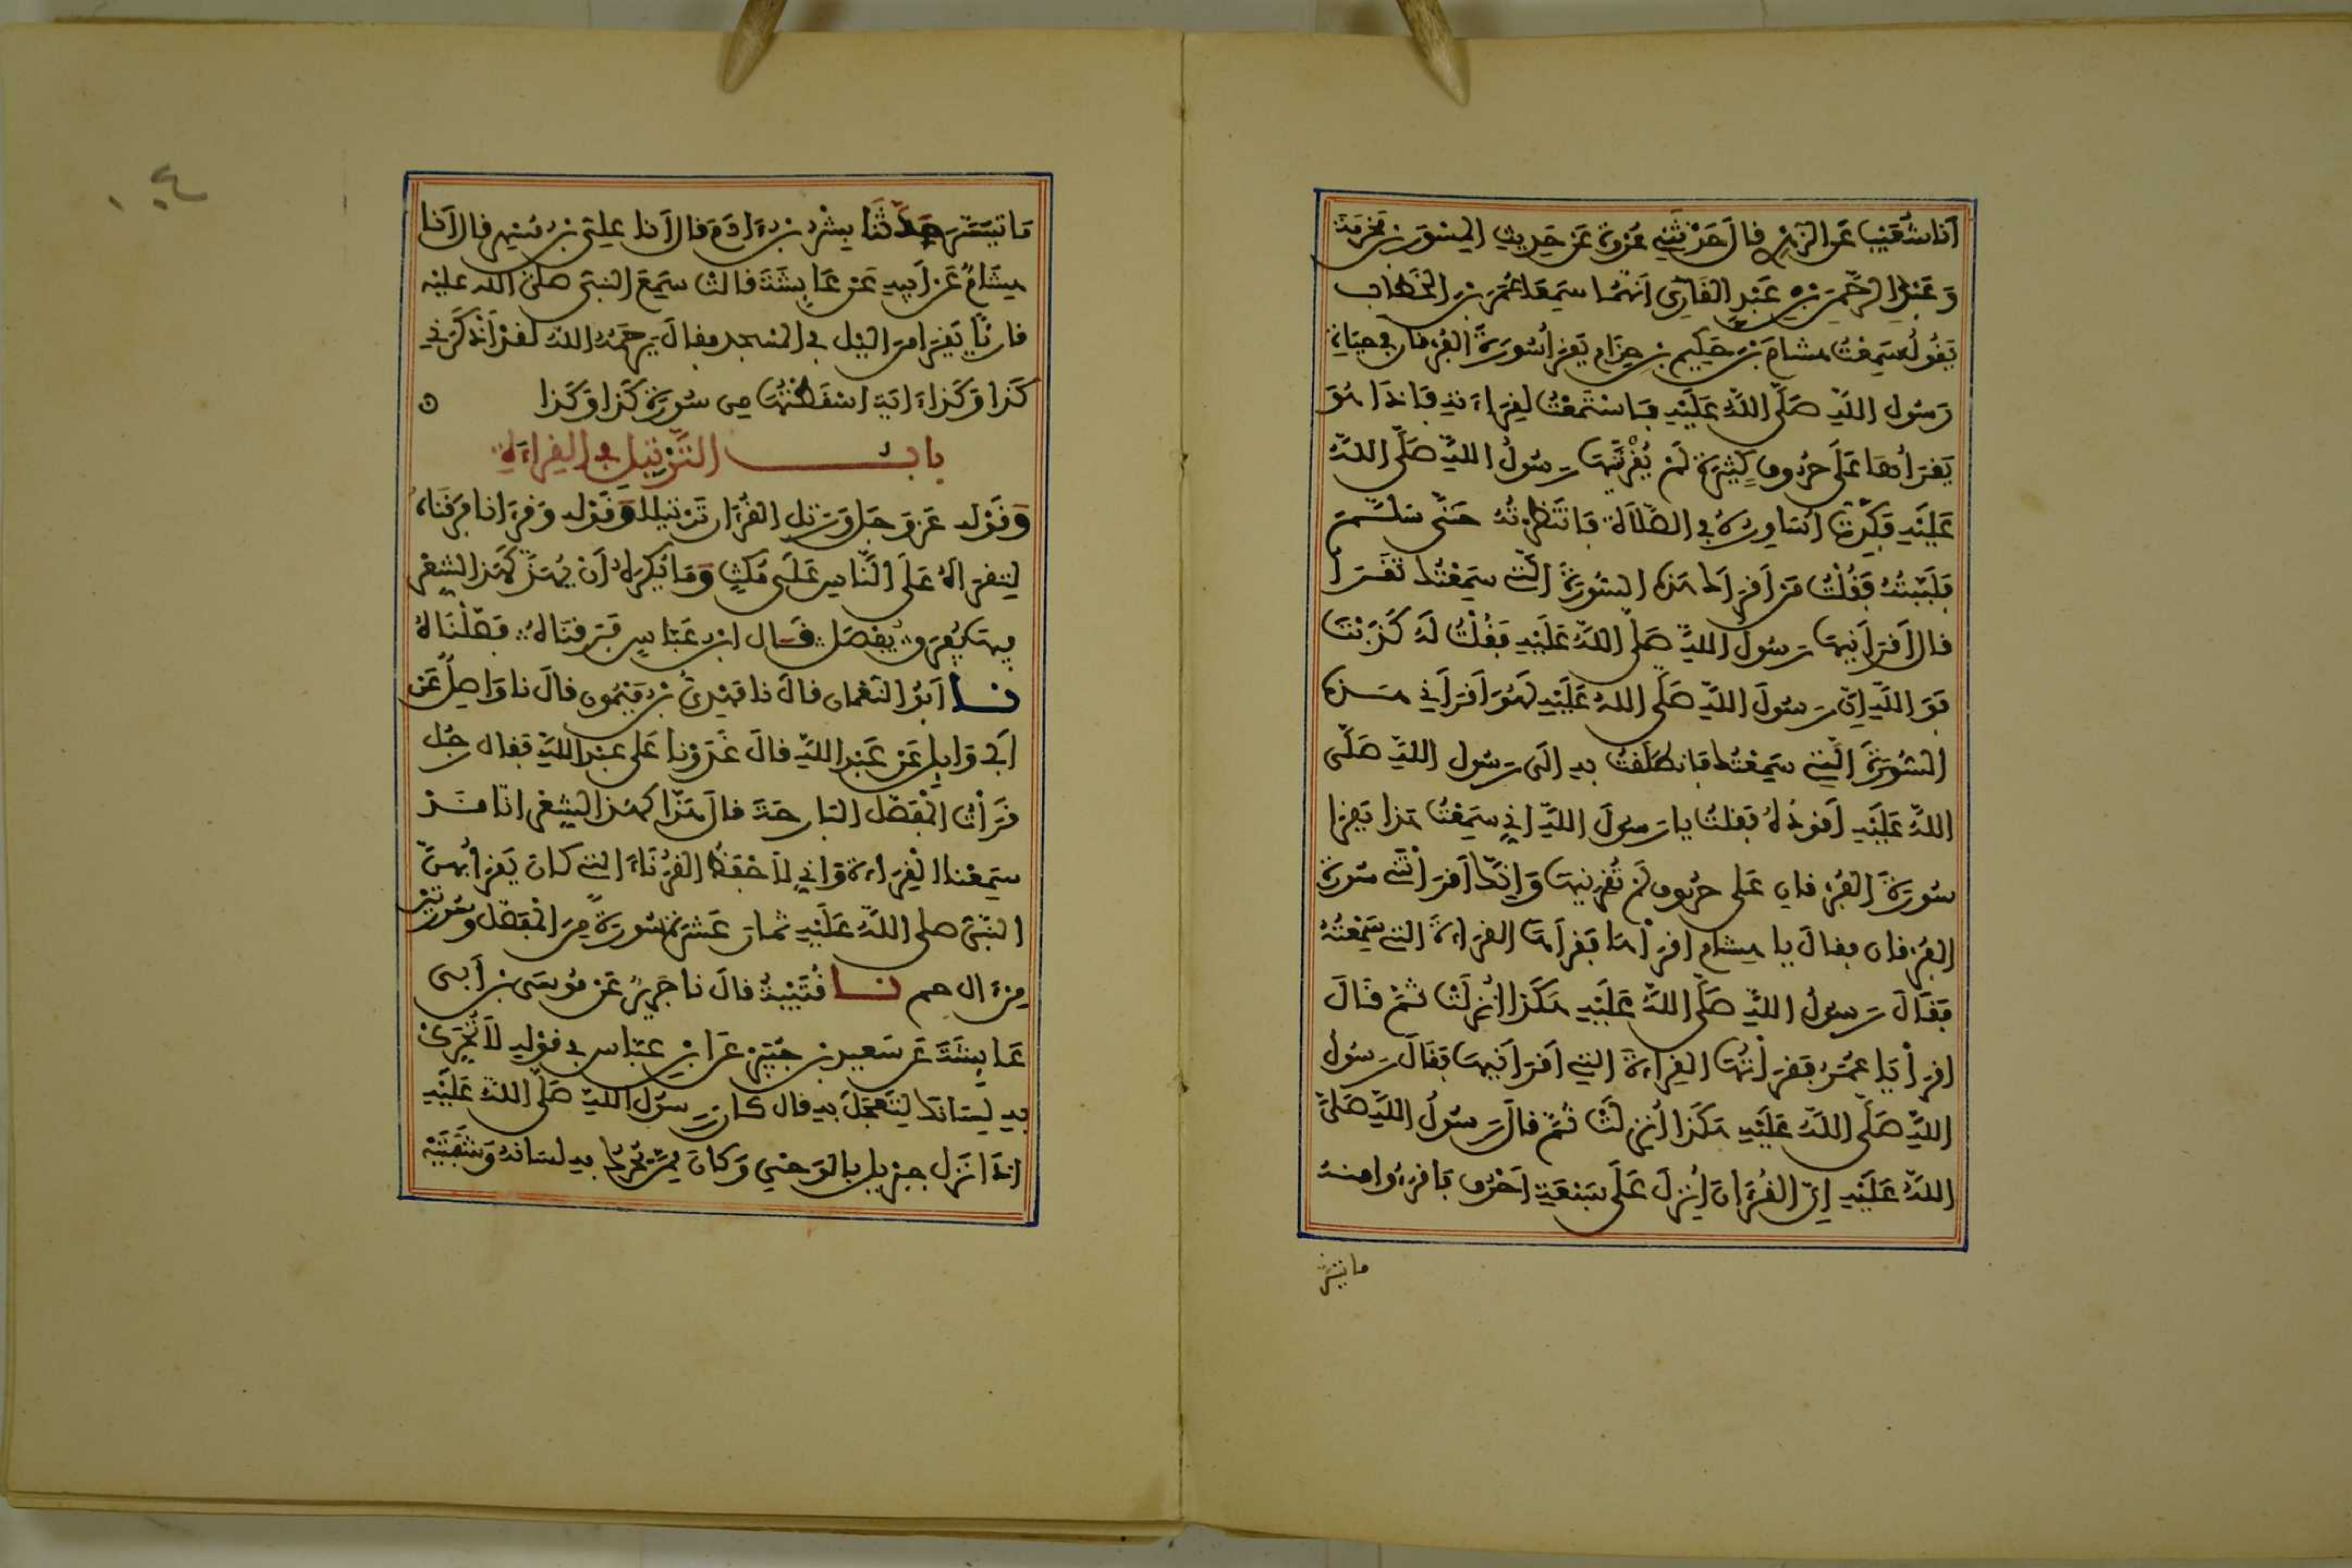 أنا شُعَيْبٌ عَنِ الزُّهْرِي قالَ حَدَّثَنِي عُرْوَةُ عَنْ حَدِيثِ المِسْوَرِ بْنِ مَخْرَمَةَ
وَعَبْدِ الرَّحْمَنِ بْنِ عَبْدٍ القَارِيِّ أَنَّهُمَا سَمِعَا عُمَرَ بْنَ الخَطَّابِ
يَقُولُ سَمِعْتُ هشامَ بْنَ حَكِيمِ بْنِ حِزَامٍ يَقْرَأُ سُورَةَ الفُرْقانِ في حياةِ
رَسُولِ اللَّهِ صَلَّى اللَّهُ عَلَيْهِ فاسْتَمَعْتُ لِقِرَاءَتِهِ فَإذَا هُوَ
يَقْرَأُهَا عَلَى حُرُوفٍ كَثِيرَةٍ لَمْ يُقْرِئْنِيهَا رَسُولُ اللَّهِ صَلَّى اللَّهُ
عَلَيْهِ فَكِدْتُ أُسَاوِرُهُ في الصَّلاَةِ فَانْتَظَرْتُهُ حَتَّى سَلَّمَ
فَلَبَّبْتُهُ فَقُلْتُ مَنْ أَقْرَأَكَ هَذِهِ السُّورَةَ الَّتِي سَمِعْتُكَ تَقْرَأُ
قالَ أَقْرَأَنِيهَا رَسُولُ اللَّهِ صَلَّى اللَّهُ عَلَيْهِ فَقُلْتُ لَهُ كَذَبْتَ
فَوَاللَّهِ إِنَّ رَسُولَ اللَّهِ صَلَّى اللهُ عَلَيْهِ لَهُوَ أَقْرَأَنِي هَذِهِ
السُّورَةَ الَّتِي سَمِعْتُكَ فانطَلَقْتُ به إلَى رَسُولِ اللَّهِ صَلَّى
اللَّهُ عَلَيْهِ أَقُودُهُ فقلتُ يا رَسُولَ اللَّهِ إني سَمِعْتُ هذا يَقْرَأُ
سُورَةَ الفُرْقانِ عَلى حُرُوفٍ لَمْ تُقْرِئْنِيهَا وَإِنَّكَ أَقْرَأْتَنِي سُورَةَ
الفُرْقان فقالَ يا هِشام اقْرَأْهَا فَقَرَأَهَا القِرَاءَةَ التي سَمِعْتُهُ
فَقَالَ رَسُولُ اللَّهِ صَلَّى اللَّهُ عَلَيْهِ هَكَذَا أُنْزِلَتْ ثُمَّ قَالَ
اقْرَأْ يَا عُمَرُ فَقَرَأْتُهَا القِرَاءَةَ التِي أَقْرَأَنِيهَا فَقَالَ رَسُولُ
اللَّهِ صَلَّى اللَّهُ عَلَيْهِ هَكَذَا أُنْزِلَتْ ثُمَّ قالَ رَسُولُ اللَّهِ صَلَّى
اللَّهُ عَلَيْهِ إِنَّ القُرْءَانَ أُنْزِلَ عَلَى سَبْعَةِ أَحْرُفٍ فَاقْرَءُوا مِنْهُ
ما تيسر
مَا تَيَسَّرَ حَدَّثَنَا بِشْرُ بْنُ ءَادَمَ قالَ أنا عَلِيُّ بْنُ مُسْهِرٍ قالَ أنا
هِشَامٌ عَنْ أَبِيهِ عَنْ عَائِشَةَ قالَتْ سَمِعَ النَّبِيُّ صلى الله عليه
قارِئًا يَقْرَأُ مِنَ الليْل في المَسْجد فقالَ يَرْحَمُهُ اللهُ لَقَدْ أَذْكَرَني
كَذَا وَكَذَا ءَايَة أسْقَطْتُهَا مِن سُورَةِ كَذَا وَكَذَا
باب التَّرْتِيلِ في القِرَاءَةِ
وَقَوْلِهِ عَزَّ وَجَلَّ وَرَتِّلِ القُرْءَانَ تَرْتِيلاً وَقَوْلِهِ وَقُرْءَانًا فَرَقْنَاهُ
لِتَقْرَأَهُ عَلَى النَّاسِ عَلَى مُكْثٍ وَمَا يُكْرَهُ أَنْ يُهَذَّ كَهَذِّ الشِّعْرِ
فِيهَا يُفْرَقُ يُفَصَّلُ قَالَ ابْنُ عَبَّاسٍ فَرَقْنَاهُ فَصَّلْنَاهُ
نا أَبُو النُّعْمانِ قالَ نا مَهْدِيُّ بْنُ مَيْمُونٍ قالَ نا وَاصِلٌ عَنْ
أبي وَايِلٍ عَنْ عَبْدِ اللَّهِ قالَ غَدَوْنَا عَلَى عبد اللَّهِ فقالَ رَجُل
قَرَأْتُ المُفَصَّلَ البارِحَةَ قالَ هَذًّا كَهَذِّ الشِّعْرِ إنَّا قَدْ
سَمِعْنَا القِرَاءَةَ وَإني لأَحْفَظُ القُرَنَاءَ التي كانَ يَقْرَأُ بِهِنَّ
النَّبِيُّ صلى اللَّهُ عَلَيْهِ ثمان عَشْرَةَ سُورَةً مِنَ المُفَصَّلِ وَسُورَتَيْنِ
مِنْ ءَالِ حم نا قُتَيْبَةُ قالَ نا جَرِيرٌ عَنْ مُوسَى بْنِ أَبِي
عَائِشَةَ عَنْ سَعِيدِ بْنِ جُبَيْرٍ عَنِ ابْنِ عَبَّاسٍ في قَوْلِهِ لاَ تُحَرِّكْ
بِهِ لِسَانَكَ لِتَعْجَلَ بِهِ قال كانَ رَسُولُ اللَّهِ صَلَّى اللَّهُ عَلَيْهِ
إذَا نَزَلَ جبْرِيلُ بالوَحْيِ وَكانَ مِمَّا يُحَرِّكُ بِهِ لسَانَهُ وَشَفَتَيْهِ